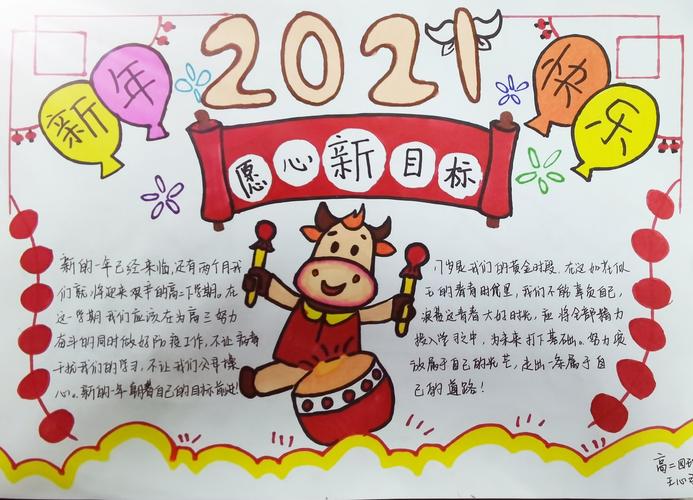 2021
新年
快乐
愿心新目标
新的一年已经来临，还有两个月我
们就将迎来艰辛的高二下学期。在
这一学期我们应该在为高三努力
奋斗的同时做好防疫工作，不让病毒
干扰我们的学习，不让我们父母操
心。新的一年朝着自己的目标前进！
岁是我们的黄金时段，在这如花似
玉的青春时代里，我们不能辜负自己，
这青春大好时光，应将全部精力
投入学习之中，为未来打下基础。努力
属于自己的光芒，走出一条属于自
己的道路！
高二
王心